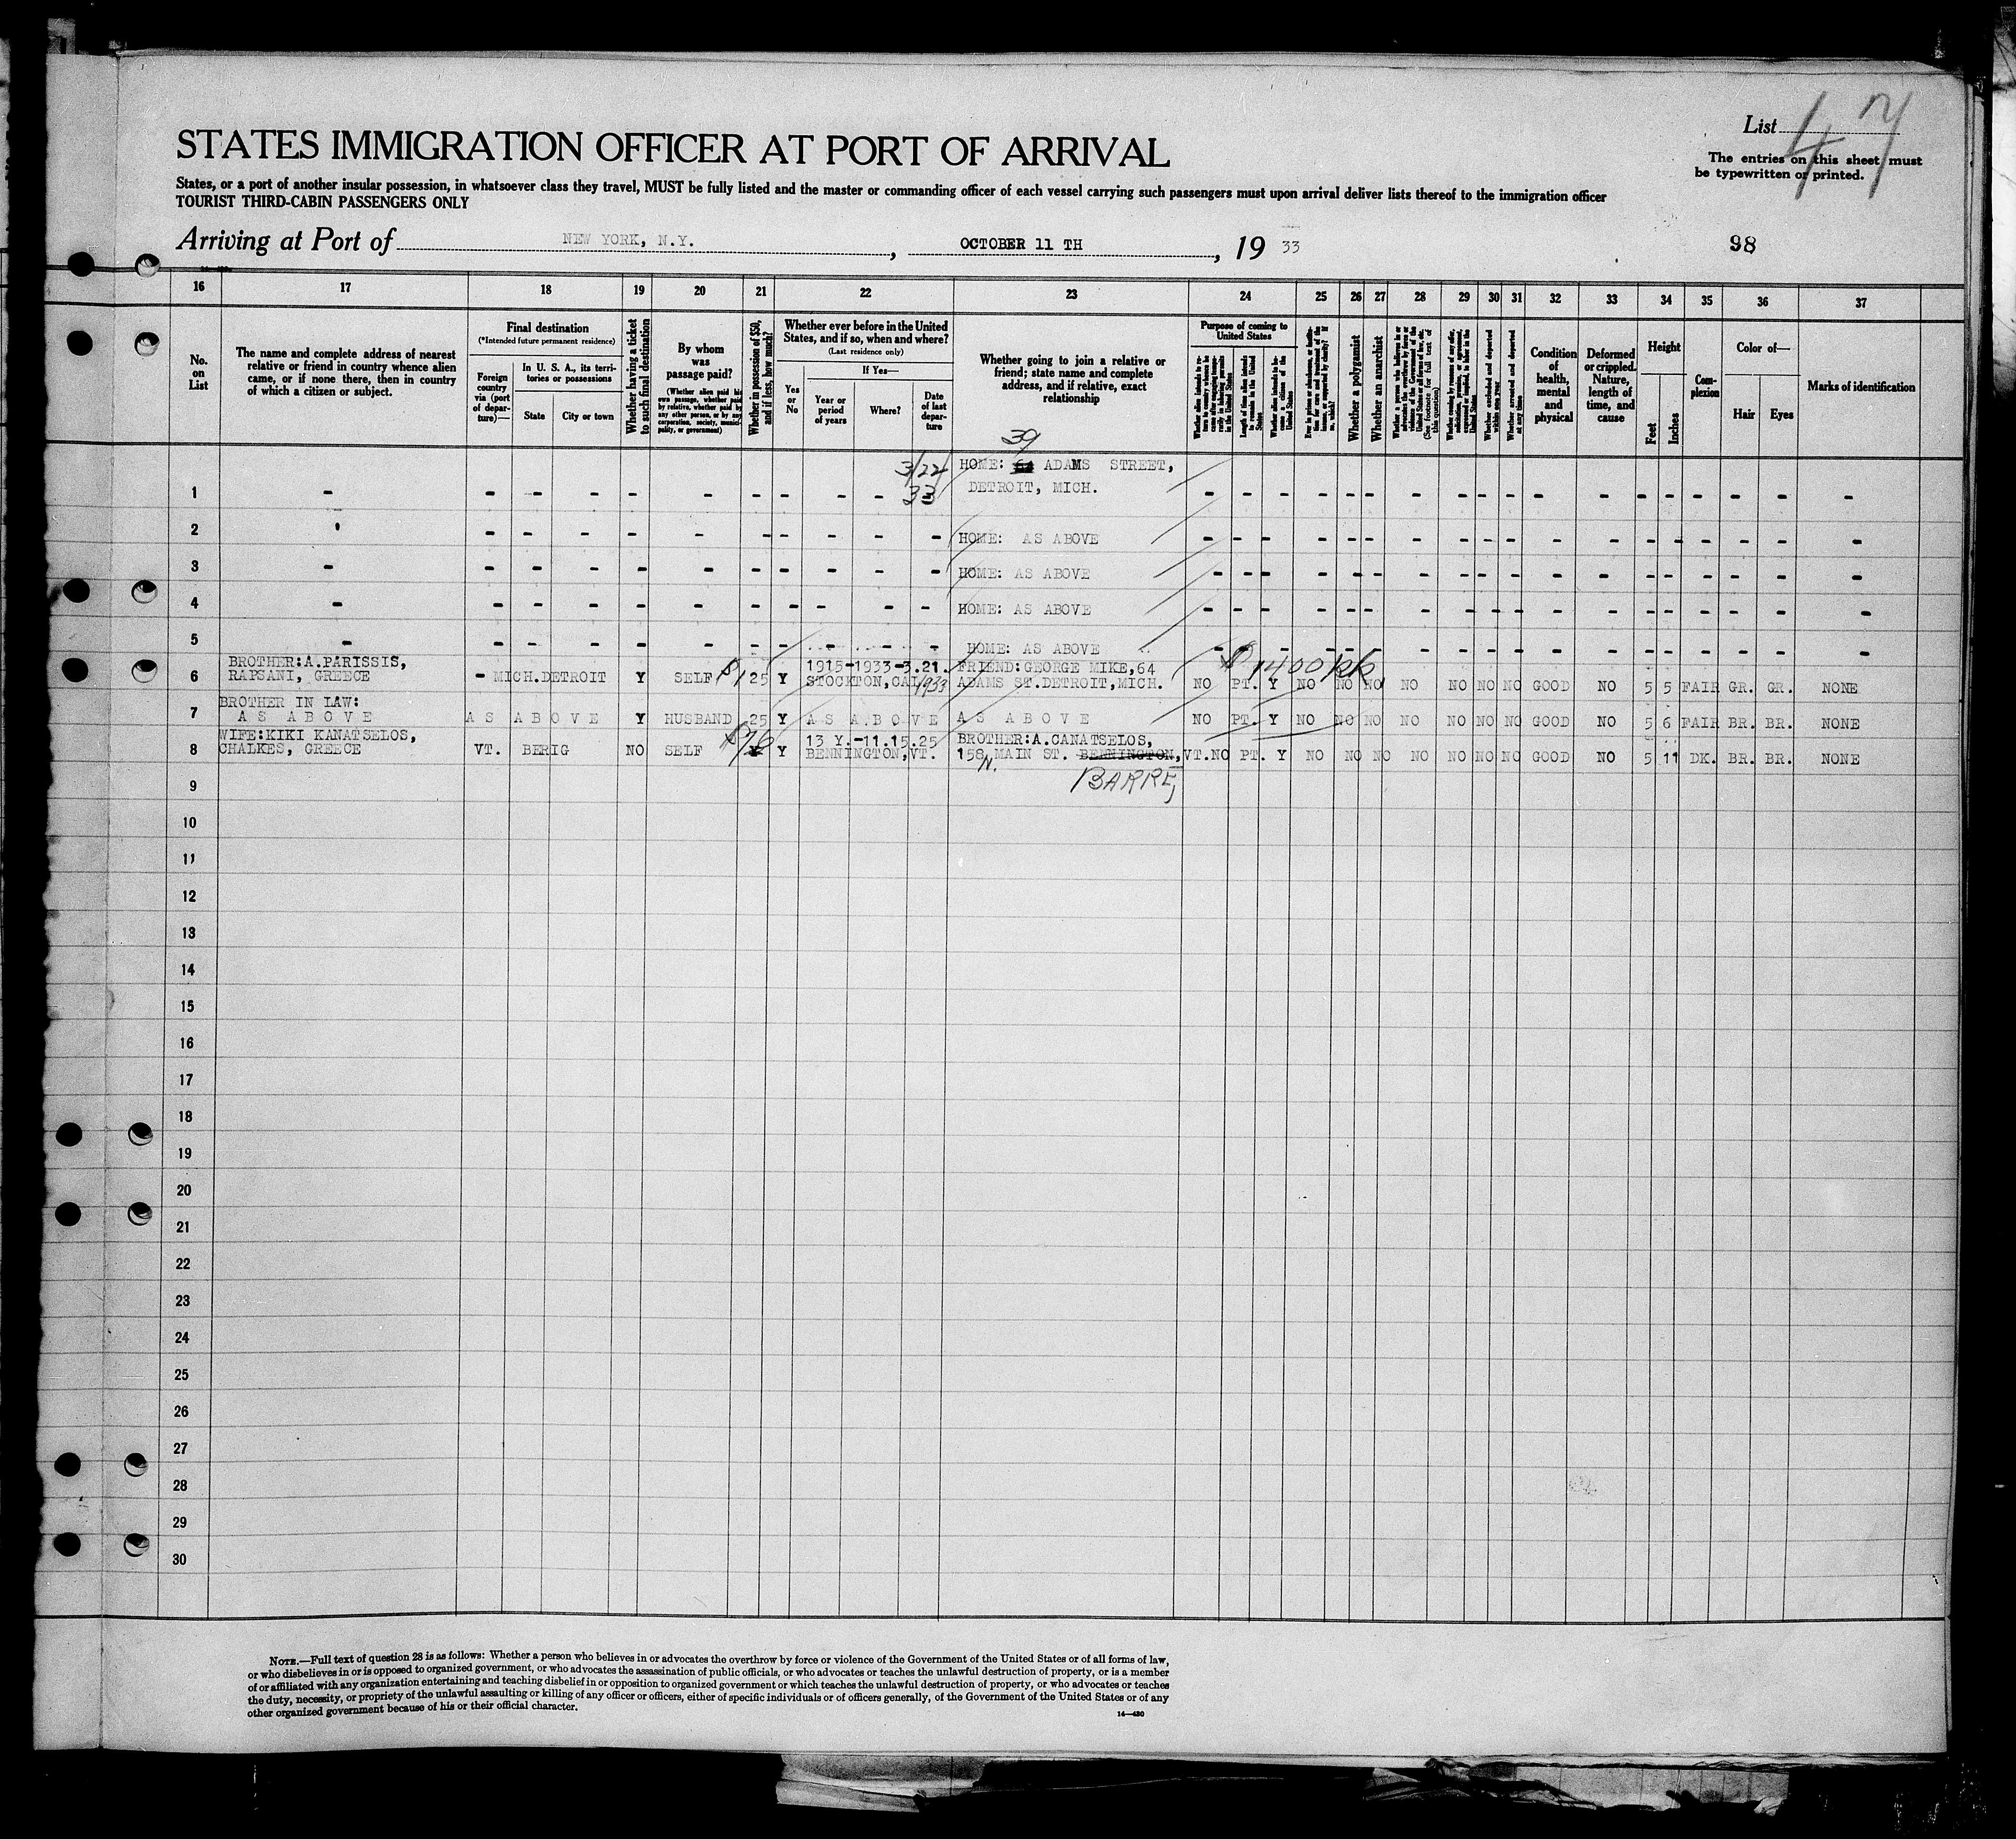 List 47
The entries on this sheet must
be typewritten or printed.
STATES IMMIGRATION OFFICER AT PORT OF ARRIVAL
States, or a port of another insular possession, in whatsoever class they travel, MUST be fully listed and the master or commanding officer of each vessel carrying such passengers must upon arrival deliver lists thereof to the immigration officer
TOURIST THIRD-CABIN PASSENGERS ONLY
Arriving at Port of NEW YORK, N.Y., OCTOBER 11 TH, 19 33
98
16 17 18 19 20 21 22 23 24 25 26 27 28 29 30 31 32 33 34 35 36 37
No.
on
List
The name and complete address of nearest
relative or friend in country whence alien
came, or if none there, then in country
of which a citizen or subject.
Final destination
(*Intended future permanent residence)
Foreign
country
via (port
of depar-
ture)—
In U. S. A., its terri-
tories or possessions
State
City or town
Whether having a ticket
to such final destination
By whom
was
passage paid?
(Whether alien paid his
own passage, whether paid
by relative, whether paid by
any other person, or by any
corporation, society, munici-
pality, or government)
Whether in possession of $50,
and if less, how much?
Whether ever before in the United
States, and if so, when and where?
(Last residence only)
Yes
or
No
If Yes—
Year or
period
of years
Where?
Date
of last
depar-
ture
Whether going to join a relative or
friend; state name and complete
address, and if relative, exact
relationship
Purpose of coming to
United States
Length of time alien intends
to remain in the United
States
Whether alien intends to be-
come a citizen of the
United States
Whether a polygamist
Whether an anarchist
(See footnote for full text of
this question)
Whether arrested and deported
within one year
Whether arrested and deported
at any time
Condition
of
health,
mental
and
physical
Deformed
or crippled.
Nature,
length of
time, and
cause
Height
Feet
Inches
Com-
plexion
Color of—
Hair
Eyes
Marks of identification
39
1 - - - - - - - - - - 3/22/33 HOME: ADAMS STREET,
DETROIT, MICH. - - - - - - - - - - - - - - - - - -
2 - - - - - - - - - - - HOME: AS ABOVE - - - - - - - - - - - - - - - - - -
3 - - - - - - - - - - - HOME: AS ABOVE - - - - - - - - - - - - - - - - - -
4 - - - - - - - - - - - HOME: AS ABOVE - - - - - - - - - - - - - - - - - -
5 - - - - - - - - - - - HOME: AS ABOVE - - - - - - - - - - - - - - - - - -
BROTHER:A.PARISSIS, 1915-1933-3.21. FRIEND:GEORGE MIKE,64 $1400
6 RAPSANI, GREECE - MICH.DETROIT Y SELF $125 Y STOCKTON,CAL 1933 ADAMS ST.DETROIT,MICH. NO PT. Y NO NO NO NO NO NO NO GOOD NO 5 5 FAIR GR. GR. NONE
BROTHER IN LAW:
7 AS ABOVE AS ABOVE Y HUSBAND 25 Y AS ABOVE AS ABOVE NO PT. Y NO NO NO NO NO NO NO GOOD NO 5 6 FAIR BR. BR. NONE
WIFE:KIKI KANATSELOS, 13 Y.-11.15.25 BROTHER:A.CANATSELOS,
8 CHALKES, GREECE VT. BERIG NO SELF Y Y BENNINGTON,VT. 158, N. MAIN ST. BENNINGTON,VT. NO PT. Y NO NO NO NO NO NO NO GOOD NO 5 11 DK. BR. BR. NONE
BARRE,
9
10
11
12
13
14
15
16
17
18
19
20
21
22
23
24
25
26
27
28
29
30
NOTE.—Full text of question 28 is as follows: Whether a person who believes in or advocates the overthrow by force or violence of the Government of the United States or of all forms of law,
or who disbelieves in or is opposed to organized government, or who advocates the assassination of public officials, or who advocates or teaches the unlawful destruction of property, or is a member
of or affiliated with any organization entertaining and teaching disbelief in or opposition to organized government or which teaches the unlawful destruction of property, or who advocates or teaches
the duty, necessity, or propriety of the unlawful assaulting or killing of any officer or officers, either of specific individuals or of officers generally, of the Government of the United States or of any
other organized government because of his or their official character.
14—430